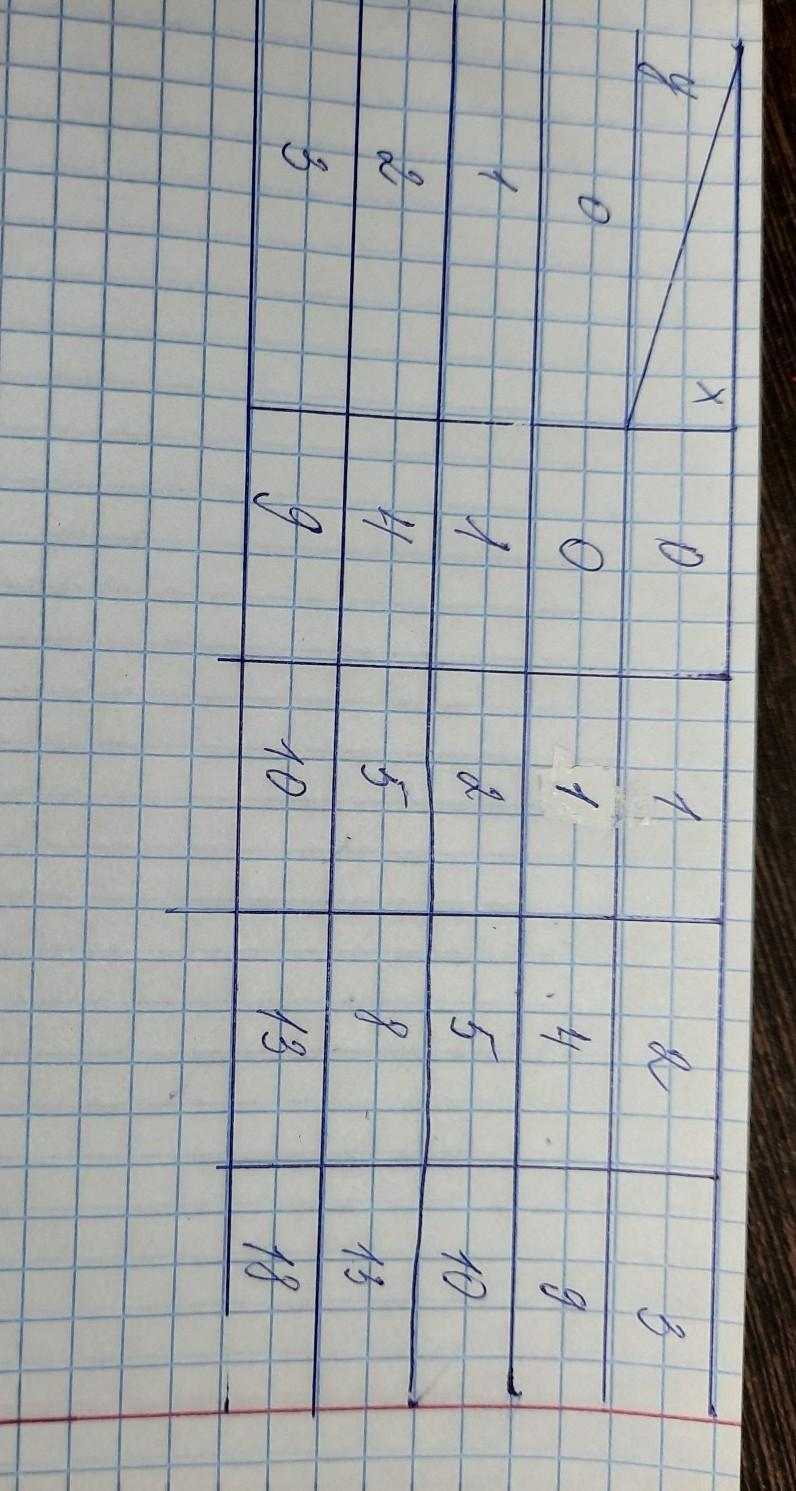 y x 0 1 2 3
0 0 1 4 9
1 1 2 5 10
2 4 5 8 13
3 9 10 13 18